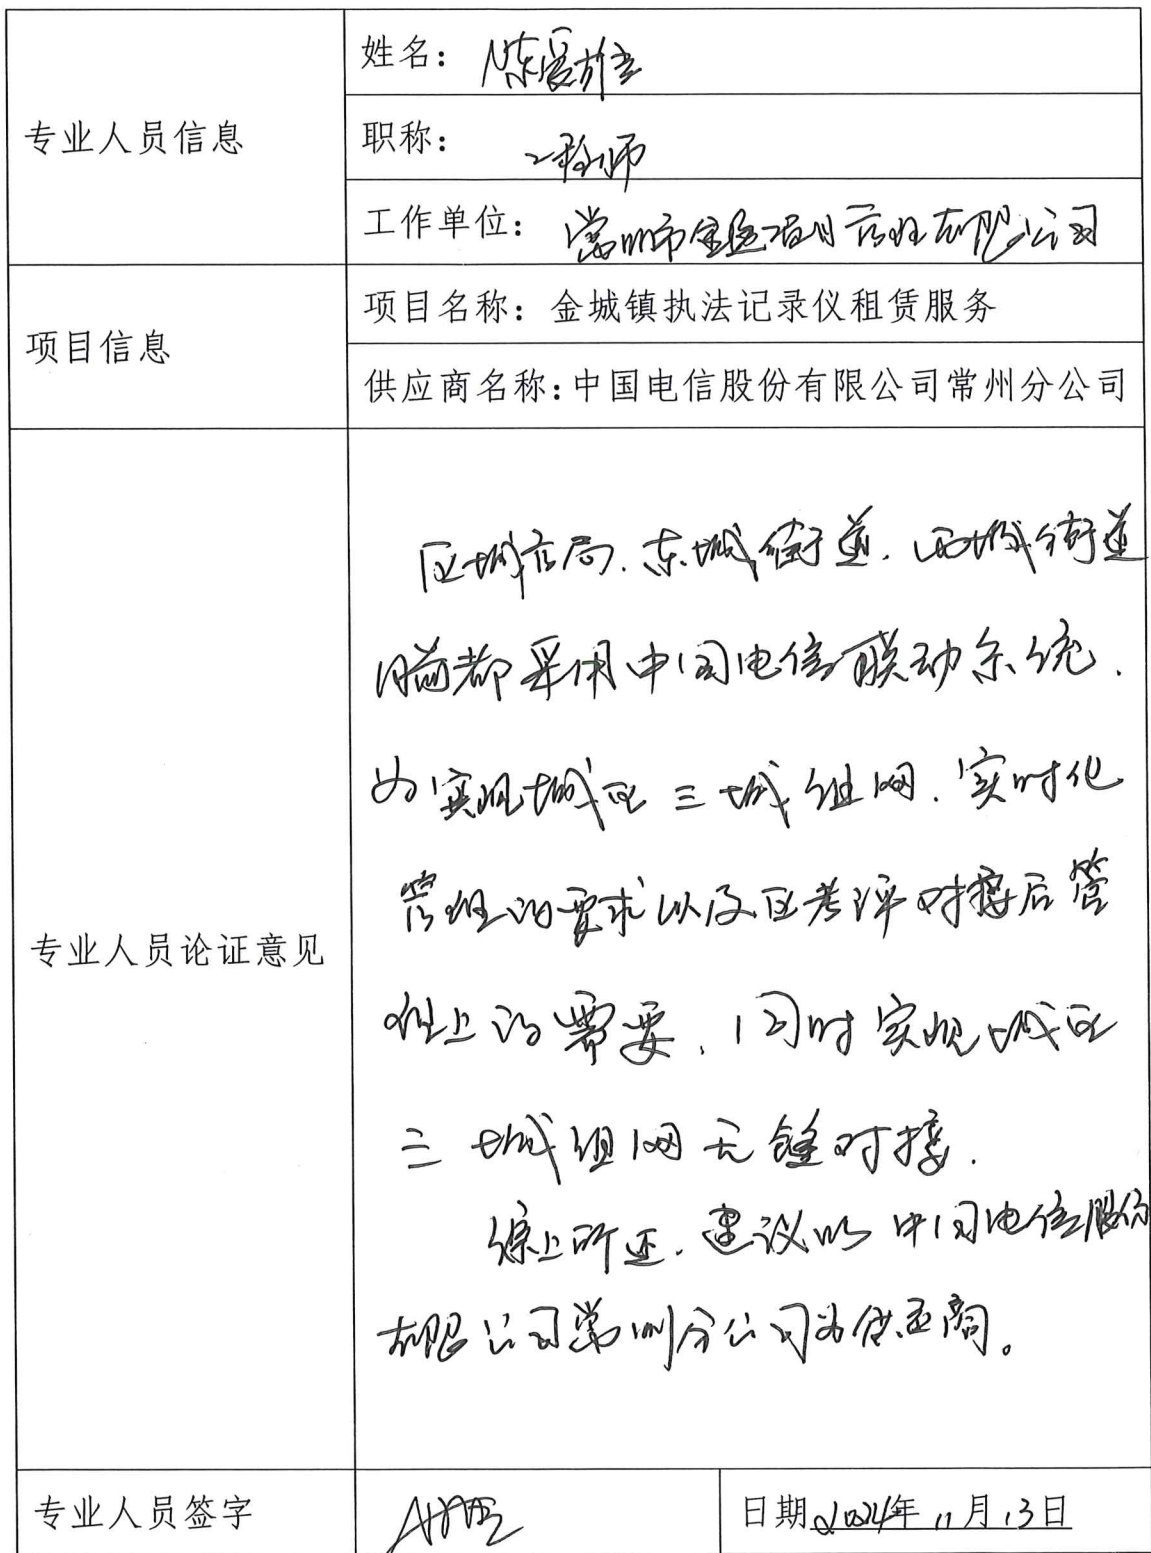 专业人员信息
姓名：陈爱
职称：工程师
工作单位：常州市金 项目管理有限公司
项目信息
项目名称：金城镇执法记录仪租赁服务
供应商名称：中国电信股份有限公司常州分公司
专业人员论证意见
区城管局、东城街道、西城街道
都采用中国电信 联动系统，
为实现城区三城组网、实时化
管理的要求以及区考评对接后管
理上的需要，同时实现城区
三城组网无缝对接。
综上所述，建议以中国电信股份
有限公司常州分公司为供应商。
专业人员签字
日期2024年11月13日